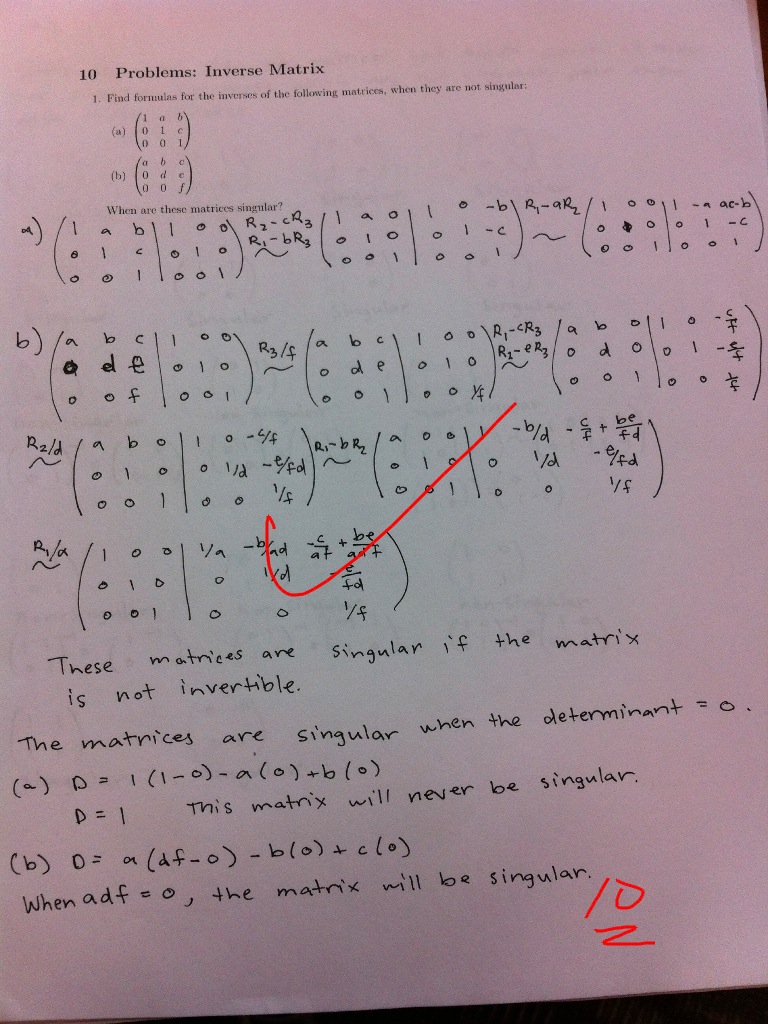 10 Problems: Inverse Matrix
1. Find formulas for the inverses of the following matrices, when they are not singular:
(a) ( 1 a b
0 1 c
0 0 1 )
(b) ( a b c
0 d e
0 0 f )
When are these matrices singular?
a) ( 1 a b | 1 0 0 ) R2-cR3 ( 1 a 0 | 1 0 -b ) R1-aR2 ( 1 0 0 | 1 -a ac-b
0 1 c | 0 1 0 R1-bR3 0 1 0 | 0 1 -c ~ 0 0 | 0 1 -c
0 0 1 | 0 0 1 ) ~ 0 0 1 | 0 0 1 ) 0 0 1 | 0 0 1 )
b) ( a b c | 1 0 0 ) R3/f ( a b c | 1 0 0 ) R1-cR3 ( a b 0 | 1 0 -c/f
0 d e | 0 1 0 ~ 0 d e | 0 1 0 R2-eR3 0 d 0 | 0 1 -e/f
0 0 f | 0 0 1 ) 0 0 1 | 0 0 1/f ) ~ 0 0 1 | 0 0 1/f )
R2/d ( a b 0 | 1 0 -c/f ) R1-bR2 ( a 0 0 | 1 -b/d -c/f + be/fd
~ 0 1 0 | 0 1/d -e/fd ~ 0 1 0 | 0 1/d -e/fd
0 0 1 | 0 0 1/f ) 0 0 1 | 0 0 1/f )
R1/a ( 1 0 0 | 1/a -b/ad -c/af + be/adf
~ 0 1 0 | 0 1/d -e/fd
0 0 1 | 0 0 1/f )
These matrices are singular if the matrix
is not invertible.
The matrices are singular when the determinant = 0.
(a) D = 1(1-0)-a(0)+b(0)
D = 1 This matrix will never be singular.
(b) D = a(df-0)-b(0)+c(0)
When adf = 0, the matrix will be singular.
10